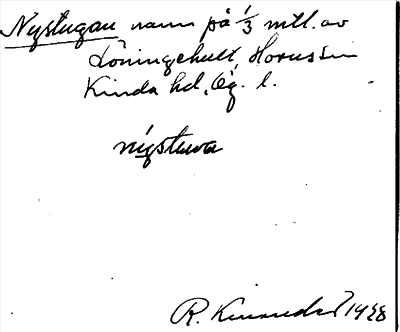 Nystugan namn på 1/3 mtl. av
Löningehult, Horn sn
Kinda hd, Ög. l.
nystuwa
R. 1928